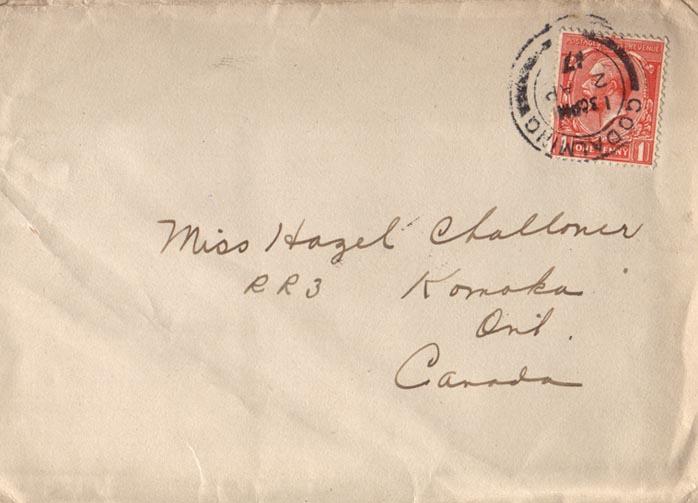 POSTAGE REVENUE
1 ONE PENNY 1
GODALMING
1 30 PM
2 AP
17
Miss Hazel Challoner
RR3 Komoka
Ont.
Canada